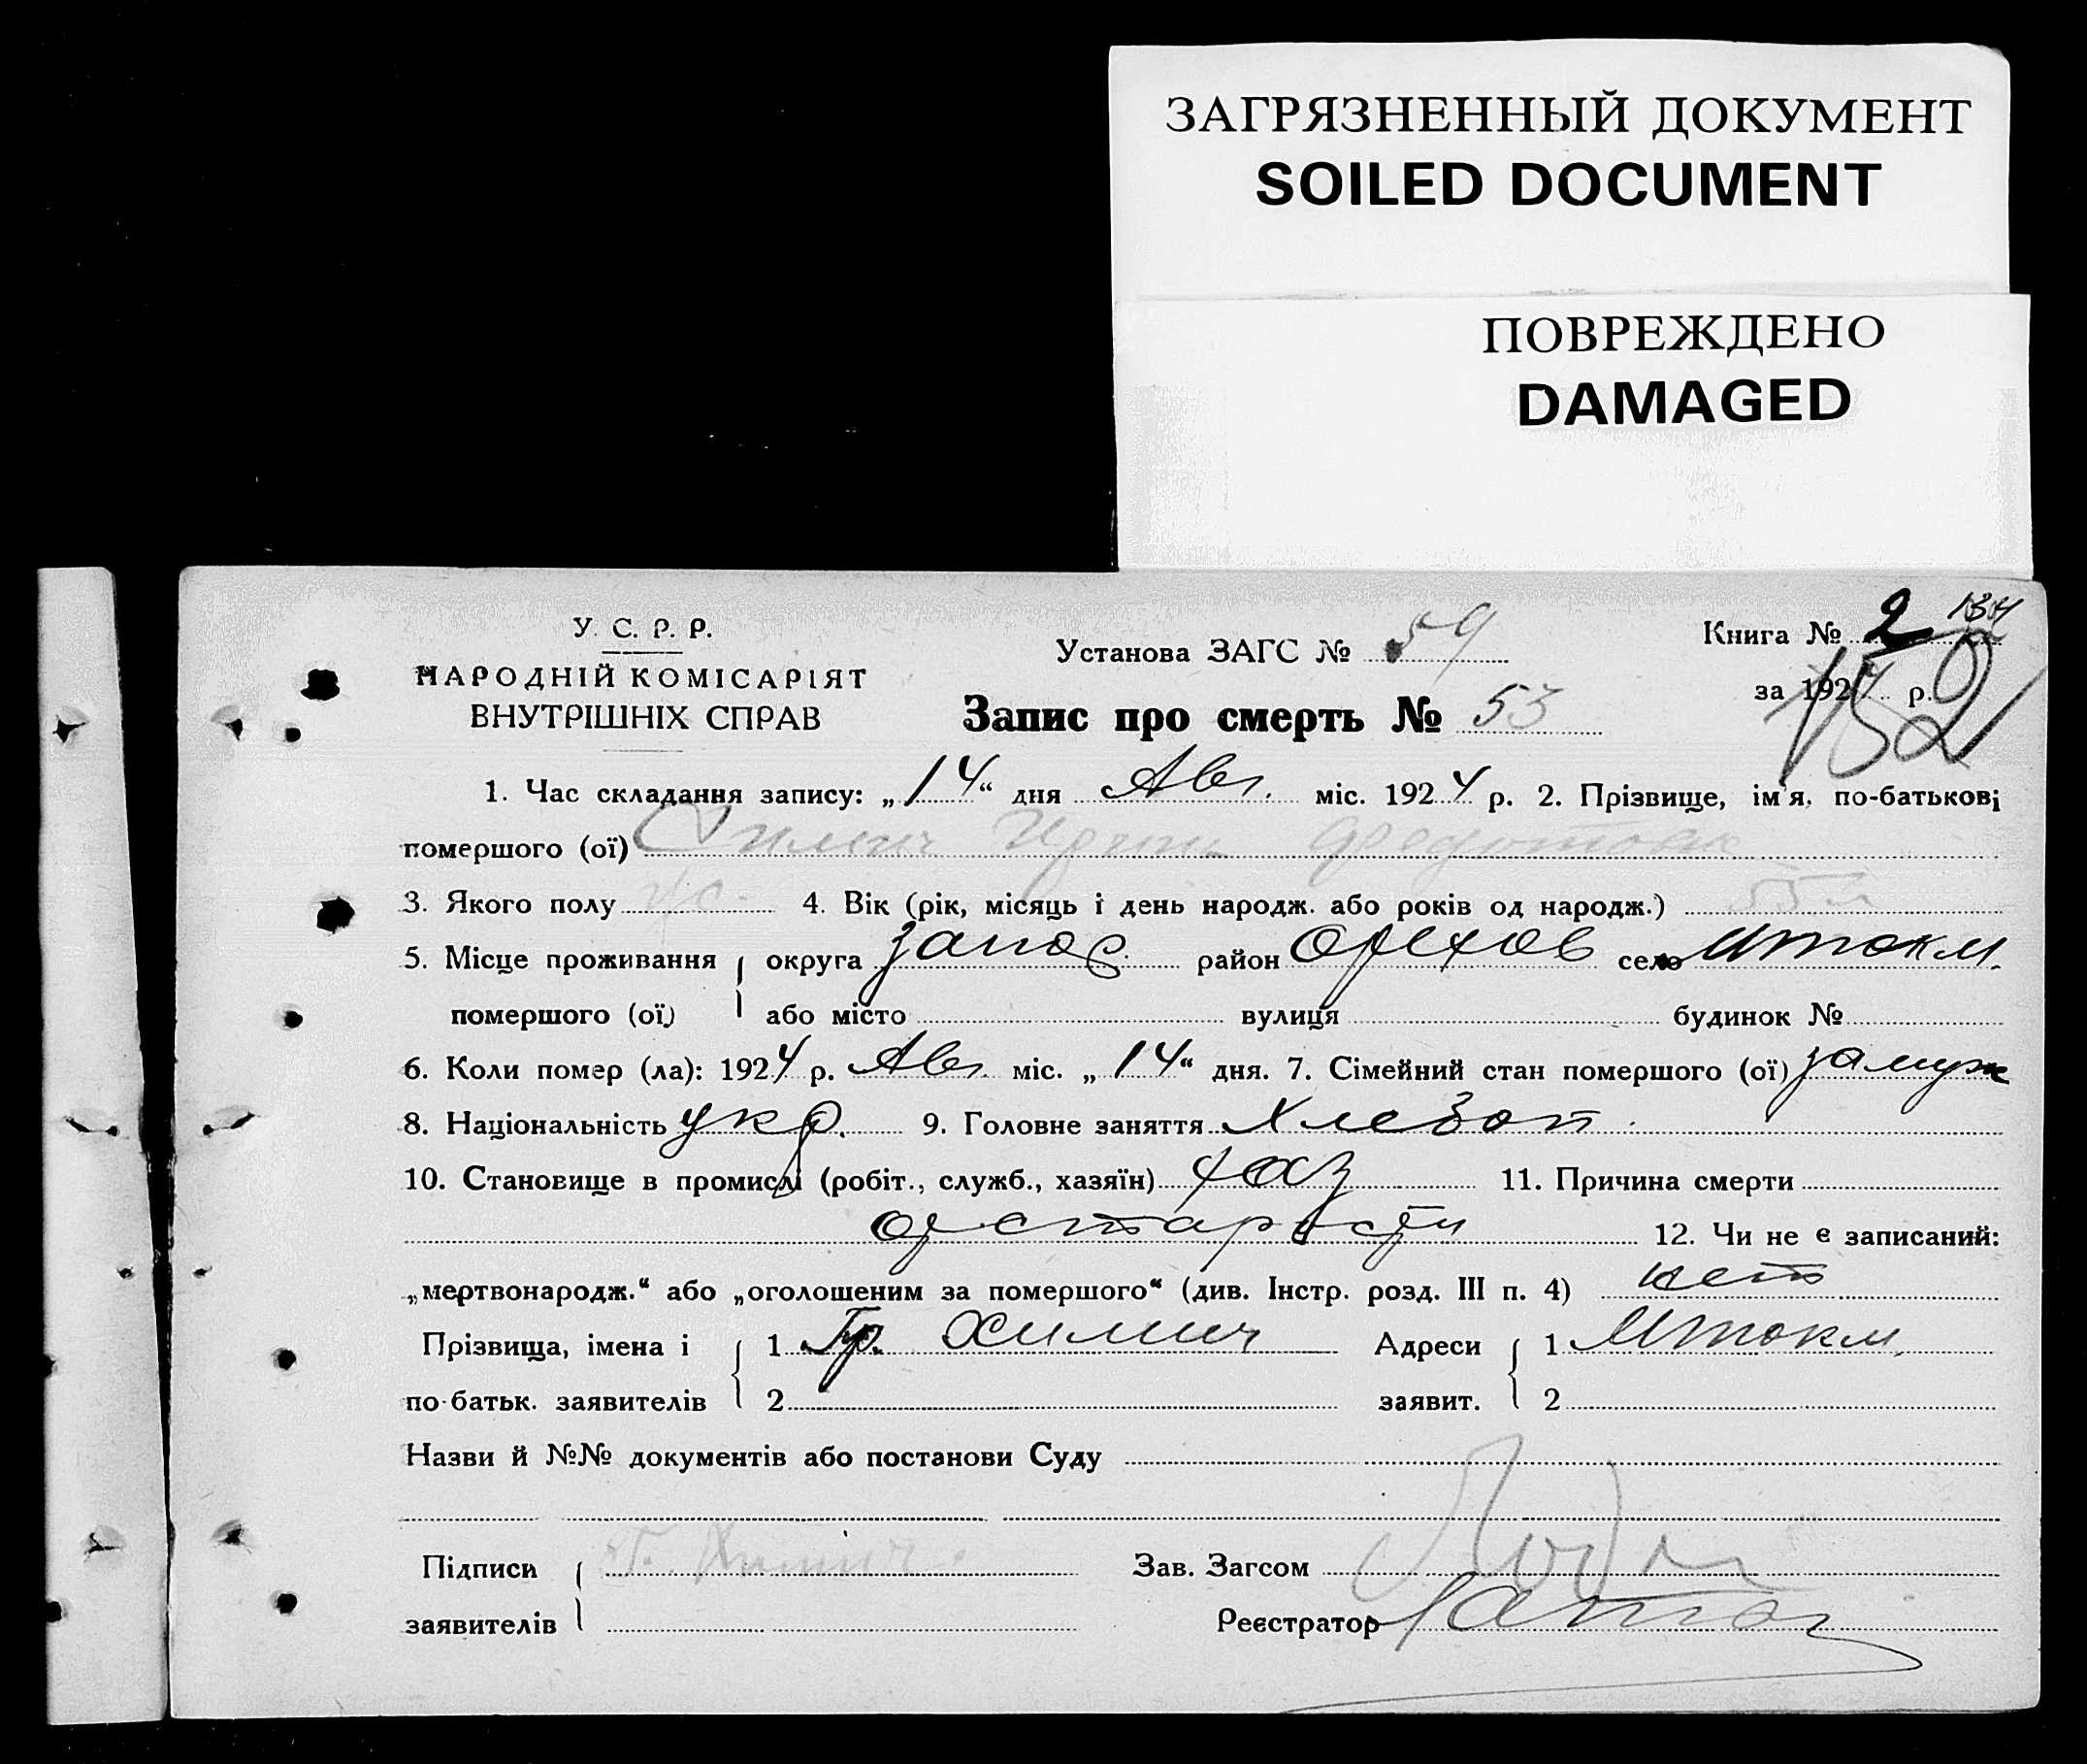 ЗАГРЯЗНЕННЫЙ ДОКУМЕНТ
SOILED DOCUMENT
ПОВРЕЖДЕНО
DAMAGED
У. С. Р. Р.
НАРОДНІЙ КОМІСАРІЯТ
ВНУТРІШНІХ СПРАВ
Установа ЗАГС № 59
Запис про смерть № 53
Книга № 2
за 1924 р.
152
1. Час складання запису: „14“ дня Авг. міс. 1924 р. 2. Прізвище, ім'я, по-батькові
помершого (ої) Химич Ирина Федотовна
3. Якого полу ж. 4. Вік (рік, місяць і день народж. або років од народж.) 55 л
5. Місце проживання округа Запор. район Орехов село Мтокм.
помершого (ої) або місто вулиця будинок №
6. Коли помер (ла): 1924 р. Авг. міс. „14“ дня. 7. Сімейний стан помершого (ої) замуж
8. Національність укр. 9. Головне заняття Хлебоп.
10. Становище в промислі (робіт., служб., хазяїн) хаз 11. Причина смерти
от старости 12. Чи не є записаний:
„мертвонародж.“ або „оголошеним за помершого“ (див. Інстр. розд. III п. 4) нет
Прізвища, імена і 1 Гр. Химич Адреси 1 Мтокм.
по-батьк. заявителів 2 заявит. 2
Назви й №№ документів або постанови Суду
Підписи Г. Химич Зав. Загсом
заявителів Реєстратор